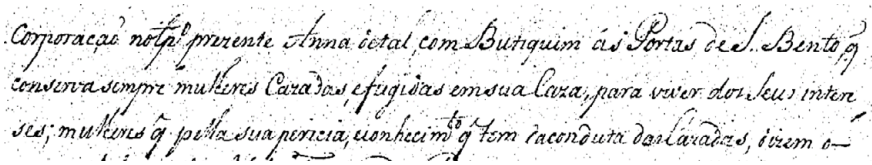 Corporação no tp.º prezente Anna de tal, com Butiquim ás Portas de S. Bento, q̃
conserva sempre mulheres Cazadas, e fugidas em sua Caza, para viver dos Seus inter
ses; mulheres q̃ pella sua pericia, e conhecim.to q̃ tem da conduta das Cazadas, dizem o-